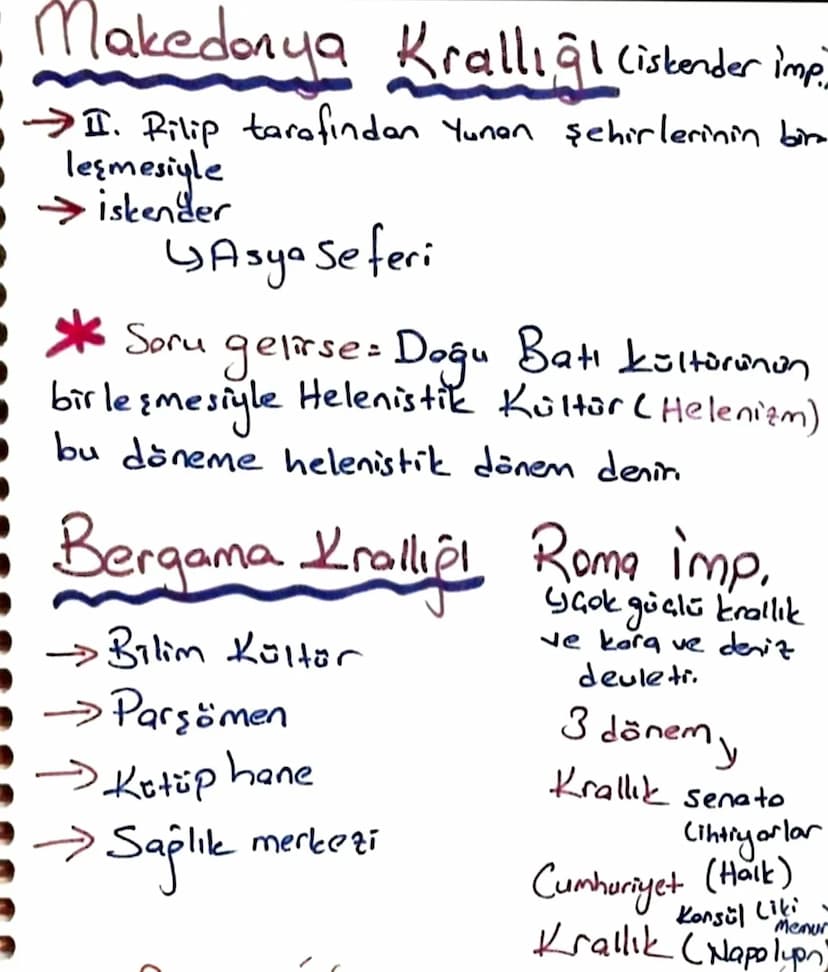 Makedonya Krallığı (iskender imp.
→ II. Rilip tarafından Yunan şehirlerinin bir
leşmesiyle
→ iskender
↳ Asya Seferi
* Soru gelirse= Doğu Batı kültürünün
birleşmesiyle Helenistik Kültür (Helenizm)
bu döneme helenistik dönem denir.
Bergama Krallığı
→ Bilim Kültür
→ Parşömen
→ Kütüphane
→ Sağlık merkezi
Roma İmp.
↳ Çok güçlü krallık
ve kara ve deniz
devleti.
3 dönem
Krallık senato
(ihtiyarlar
Cumhuriyet (Halk)
Konsül (iki
memur
Krallık (Napolyon)